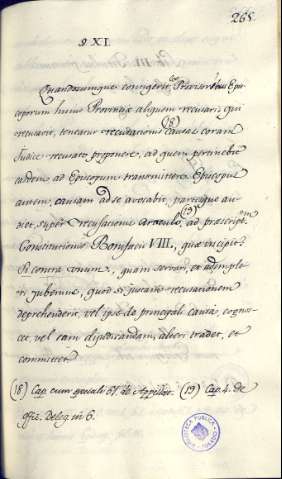 265.
§ XI.
Quandocumque contigerit de Provisoribus Epis-
coporum huius Provinciæ aliquem recusari, qui
recusarit, teneatur recusationis causas (18) coram
Judice recusato proponere, ad quem pertinebit
easdem ad Episcopum transmittere. Episcopus
autem, causam ad se avocabit, partesque au-
diet, super recusatione (19), ad præscriptum
Constitutionis Bonifacii VIII., quæ incipit:
Si contra unum, quam servari, et adimple-
ri jubemus, quod si justam recusationem
deprehenderit, vel ipse de principali causa cognos-
cet, vel eam dijudicandam, alteri tradet, et
committet.
(18) Cap. cum speciali 61 de Appellat. (19) Cap. 4. de
offic. Deleg. in 6.
BIBLIOTECA PUBLICA